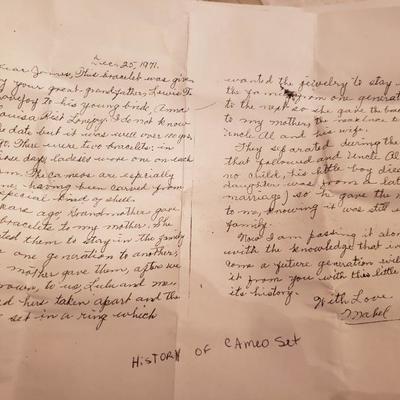 Dec 25, 1971.
Dear James, This bracelet was given
by your great, grandfather, Lewis
Lovejoy to his young bride,
Louisa Rist Lovejoy. I do not know
the date but it was well over 100 yrs.
ago. There were two bracelets; in
those days ladies wore one on each
arm. The cameos are especially
fine, having been carved from
special kind of shell.
years ago Grandmother gave
bracelets to my mother. She
wanted them to stay in the family
one generation to another,
mother gave them, after we
grown, to us, Lulu and me.
had hers taken apart and the
set in a ring which
wanted the jewelry to stay
the family, from one generation
to the next so she gave the
to my mother, the necklace to
Uncle Al and his wife.
They separated during the
that followed and Uncle Al
no child, his little boy died
daughter was from a later
marriage) so he gave the
to me, knowing it was still
family.
Now I am passing it along
with the knowledge that in
some a future generation will
it from you with this little
its history.
With Love,
Mabel
HISTORY OF CAMEO SET